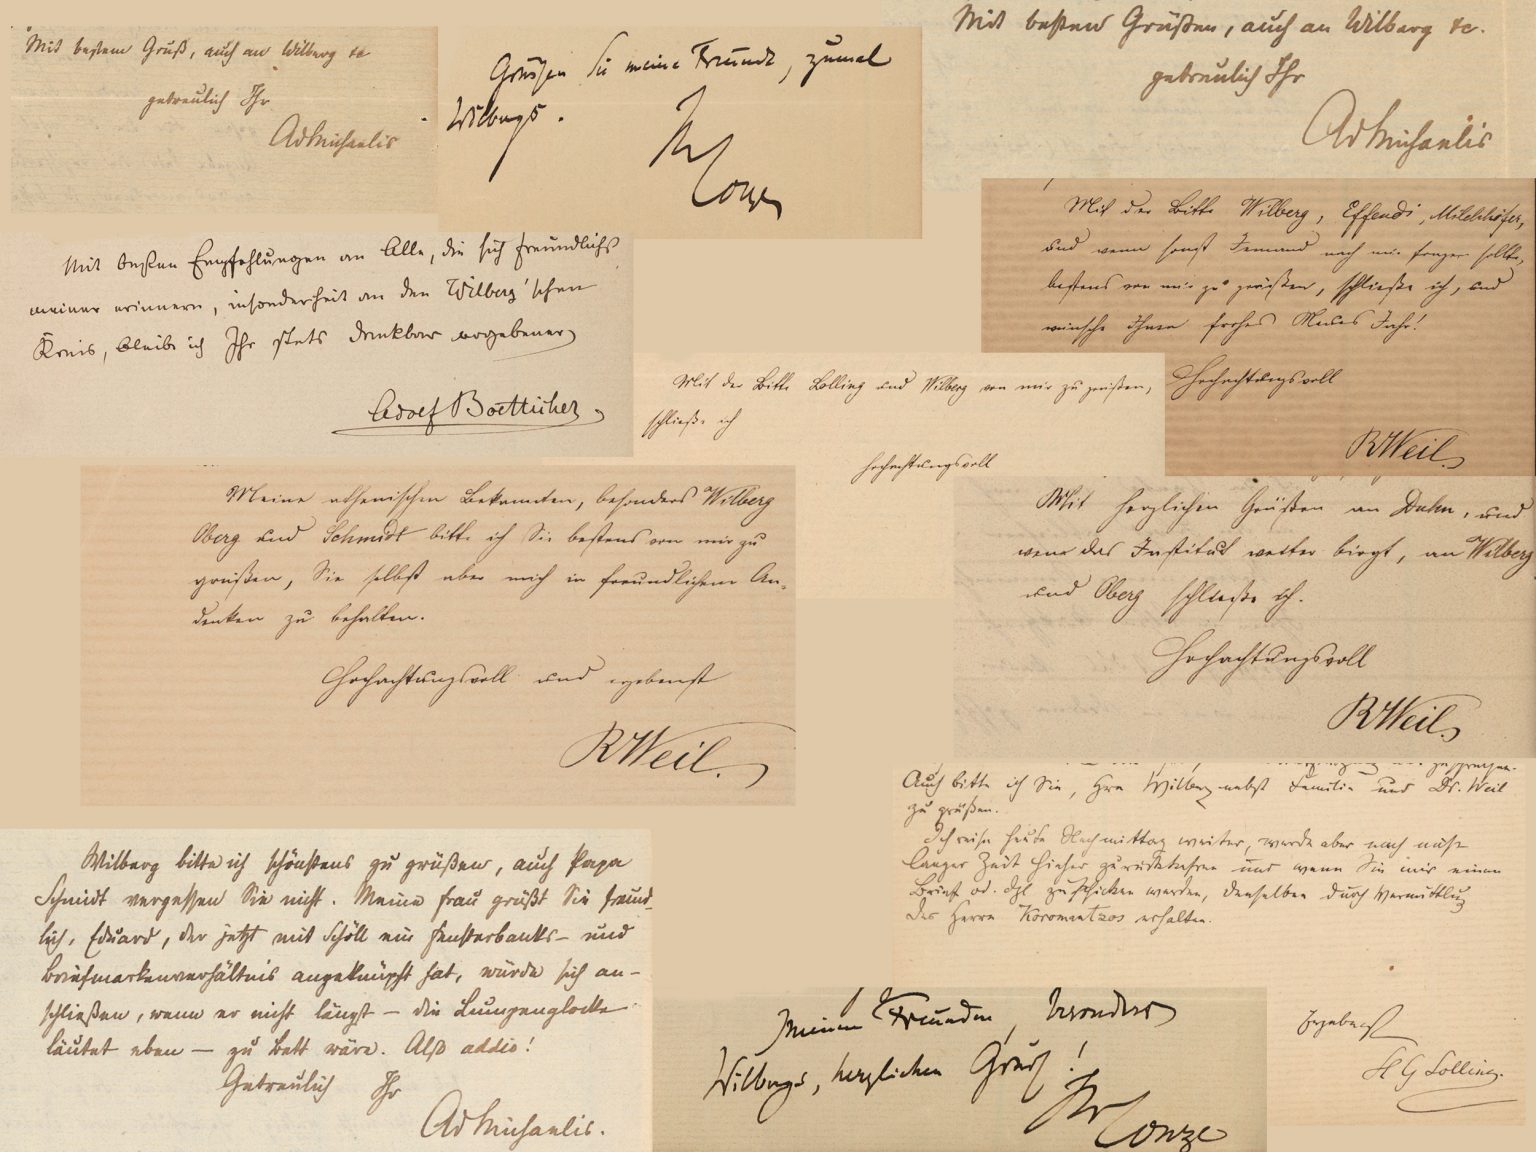 Mit bestem Gruß, auch an Wilberg &c
getreulich Ihr
AdMichaelis
Grüßen Sie meine Freunde, zumal
Wilbergs.
Ihr
Conze
Mit besten Grüßen, auch an Wilberg &c.
getreulich Ihr
AdMichaelis
Mit der Bitte Wilberg, Effendi, Milchhöfer,
und wenn sonst Jemand nach mir fragen sollte,
bestens von mir zu grüßen, schließe ich, und
wünsche Ihnen frohes Neues Jahr!
Hochachtungsvoll
RWeil
Mit besten Empfehlungen an Alle, die sich freundlichst
meiner erinnern, insonderheit an den Wilberg'schen
Kreis, bleibe ich Ihr stets dankbar ergebener
Adolf Boetticher
Mit der Bitte Lolling und Wilberg von mir zu grüßen,
schließe ich
hochachtungsvoll
Meine athenischen Bekannten, besonders Wilberg
Oberg und Schmidt bitte ich Sie bestens von mir zu
grüßen, Sie selbst aber mich in freundlichem An-
denken zu behalten.
Hochachtungsvoll und ergebenst
RWeil.
Mit herzlichen Grüßen an Duhn, und
wenn das Institut weiter birgt, an Wilberg
und Oberg schließe ich.
Hochachtungsvoll
RWeil
Auch bitte ich Sie, Hrn Wilberg nebst Familie und Dr. Weil
zu grüßen.
Ich reise heute Nachmittag weiter, werde aber nach nicht
langer Zeit hieher zurückkehren und wenn Sie mir einen
Brief od. dgl. zuschicken werden, denselben durch Vermittlung
des Herrn Koromantzos erhalten.
Ergebenst
H G Lolling.
Wilberg bitte ich schönstens zu grüßen, auch Papa
Schmidt vergessen Sie nicht. Meine Frau grüßt Sie freund-
lich, Eduard, der jetzt mit Schöll ein Fensterbanks- und
Briefmarkenverhältnis angeknüpft hat, würde sich an-
schließen, wenn er nicht längst – die Lumpenglocke
läutet eben – zu Bett wäre. Also addio!
Getreulich Ihr
AdMichaelis.
Meinen Freunden, besonders
Wilbergs, herzlichen Gruß!
Ihr
Conze